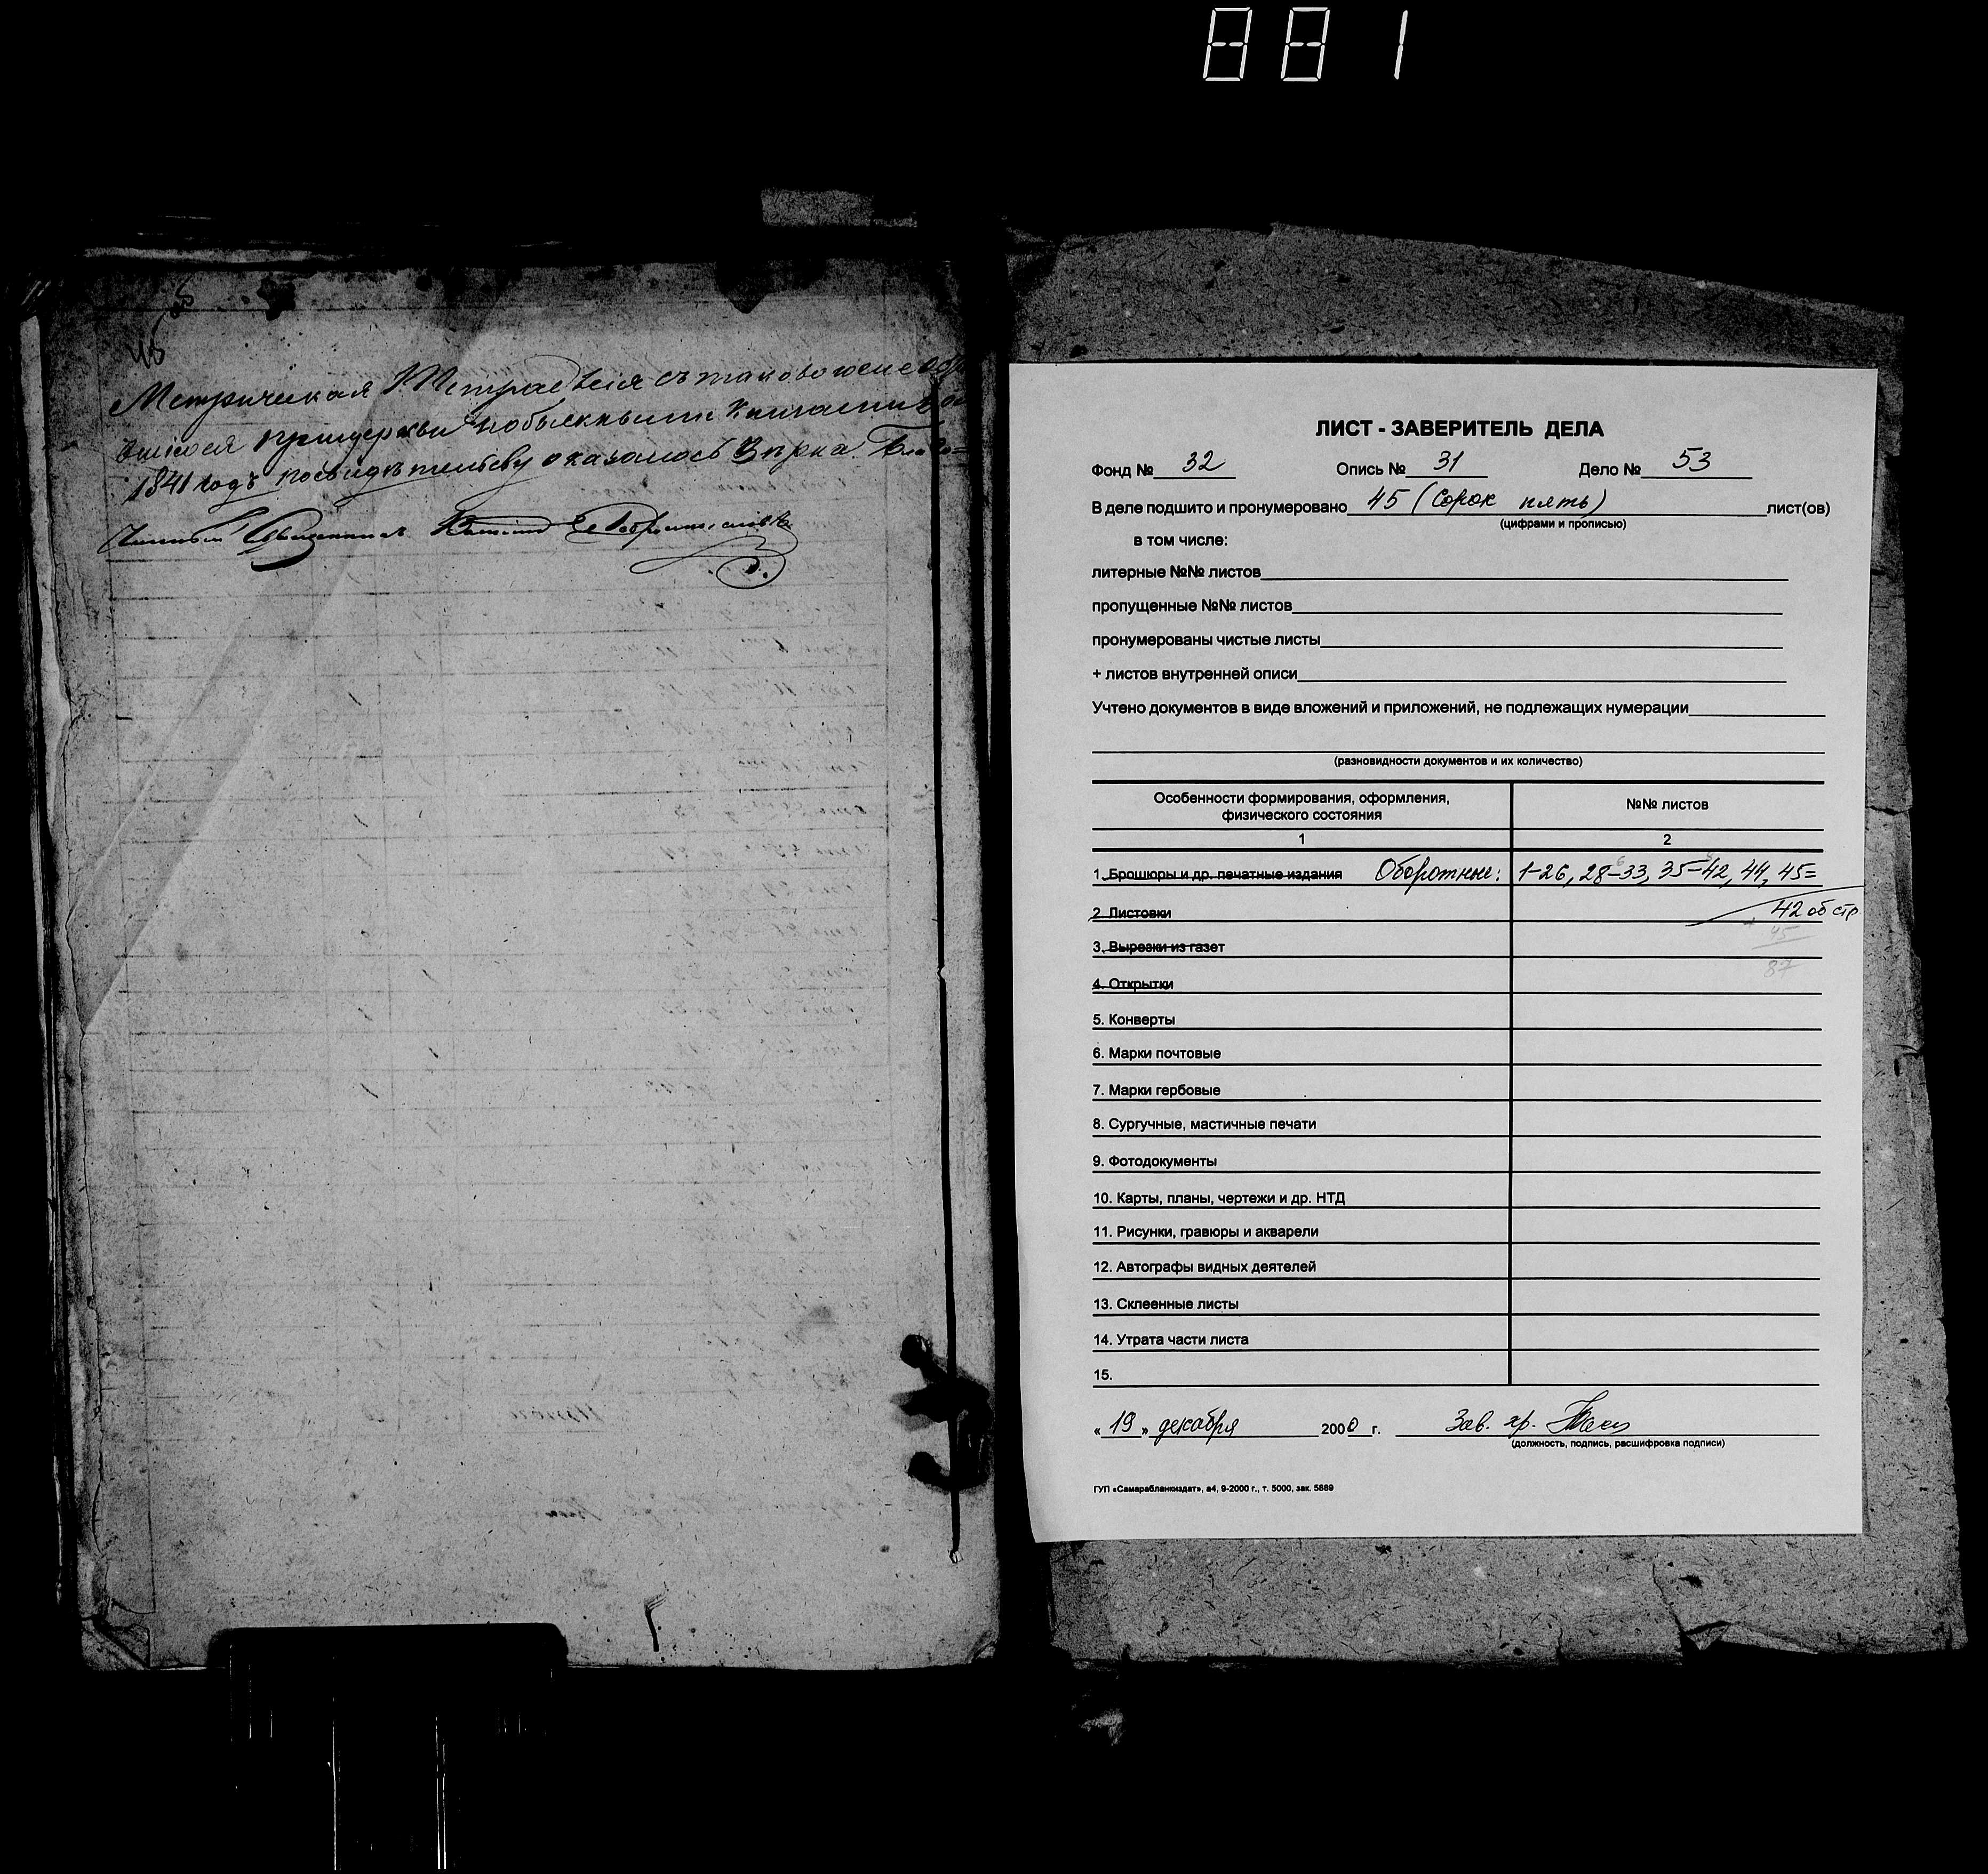 881
45
Метрическая Тетрадь сія съ таковоюже
приЦеркви обыскными Книгами
1841 годъ посвидѣтельству оказалось Вѣрна. Благо=
чинный Священникъ
ЛИСТ - ЗАВЕРИТЕЛЬ ДЕЛА
Фонд № 32 Опись № 31 Дело № 53
В деле подшито и пронумеровано 45 (Сорок пять) лист(ов)
(цифрами и прописью)
в том числе:
литерные №№ листов
пропущенные №№ листов
пронумерованы чистые листы
+ листов внутренней описи
Учтено документов в виде вложений и приложений, не подлежащих нумерации
(разновидности документов и их количество)
Особенности формирования, оформления, физического состояния №№ листов
1 2
1. Брошюры и др. печатные издания Оборотные: 1-26, 28-33, 35-42, 44, 45=
2. Листовки 42 об стр
3. Вырезки из газет 45
87
4. Открытки
5. Конверты
6. Марки почтовые
7. Марки гербовые
8. Сургучные, мастичные печати
9. Фотодокументы
10. Карты, планы, чертежи и др. НТД
11. Рисунки, гравюры и акварели
12. Автографы видных деятелей
13. Склеенные листы
14. Утрата части листа
15.
« 19 » декабря 2000 г. Зав. хр.
(должность, подпись, расшифровка подписи)
ГУП «Самарабланкиздат», а4, 9-2000 г., т. 5000, зак. 5889